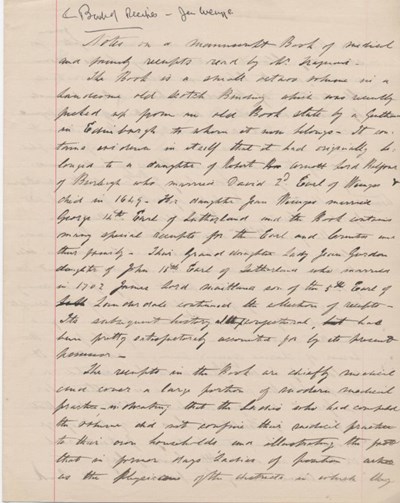 Notes on a manuscript Book of medical
and family receipts read by Mr
The Book is a small octavo volume in a
handsome old Scotch Binding which was recently
picked up from an old Book stall by a Gentleman
in Edinburgh to whom it now belongs - It con-
tains evidence in itself that it had originally be-
longed to a daughter of Robert Lord Balfour
of Burleigh who married David 2d Earl of Wemyss &
died in 1649 - His daughter Jean Wemyss married
George 14th Earl of Sutherland and the Book contains
many special receipts for the Earl and Countess and
their family - Their Grand daughter Lady Jean Gordon
daughter of John 15th Earl of Sutherland who married
in 1702 James Lord Maitland son of the 5th Earl of
Lauderdale continued the collection of receipts -
Its subsequent history, conjectural, has
been pretty satisfactorily accounted for by its present
possessor -
The receipts in the Book are chiefly medical
and cover a large portion of modern medical
practice - indicating that the Ladies who had compiled
the volume did not confine their medical practice
to their own households and illustrating the fact
that in former days Ladies of position acted
as the physicians of the districts in which they